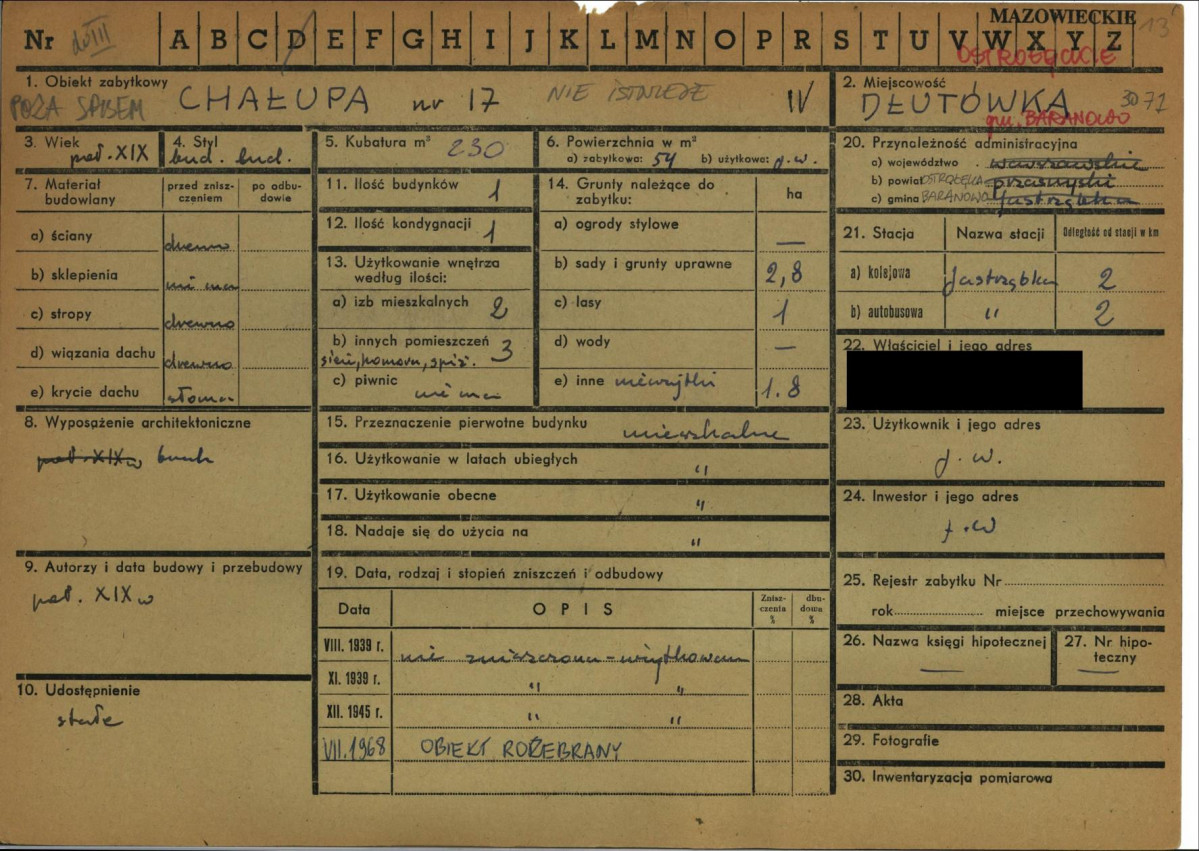 MAZOWIECKIE
13
Nr do III A B C D E F G H I J K L M N O P R S T U V W X Y Z
OSTROŁĘCKIE
1. Obiekt zabytkowy
POZA SPISEM
CHAŁUPA nr 17 NIE ISTNIEJE IV
2. Miejscowość
DŁUTÓWKA 3072
gm. BARANOWO
3. Wiek
poł. XIX
4. Styl
bud. lud.
5. Kubatura m³ 230
6. Powierzchnia w m²
a) zabytkowa: 54 b) użytkowa: j.w.
7. Materiał budowlany
przed znisz-
czeniem
po odbu-
dowie
a) ściany drewno
b) sklepienia nie ma
c) stropy drewno
d) wiązania dachu drewno
e) krycie dachu słoma
8. Wyposażenie architektoniczne
poł. XIX w brak
9. Autorzy i data budowy i przebudowy
poł. XIX w
10. Udostępnienie
stałe
11. Ilość budynków 1
12. Ilość kondygnacji 1
13. Użytkowanie wnętrza
według ilości:
a) izb mieszkalnych 2
b) innych pomieszczeń 3
sień, komora, spiż.
c) piwnic nie ma
14. Grunty należące do
zabytku:
ha
a) ogrody stylowe —
b) sady i grunty uprawne 2,8
c) lasy 1
d) wody —
e) inne nieużytki 1.8
15. Przeznaczenie pierwotne budynku mieszkalne
16. Użytkowanie w latach ubiegłych "
17. Użytkowanie obecne "
18. Nadaje się do użycia na "
19. Data, rodzaj i stopień zniszczeń i odbudowy
Data OPIS
Znisz-
czenia
%
dbu-
dowa
%
VIII. 1939 r. nie zniszczona - użytkowana
XI. 1939 r. " "
XII. 1945 r. " "
VII. 1968 OBIEKT ROZEBRANY
20. Przynależność administracyjna
a) województwo warszawskie
b) powiat OSTROŁĘKA przasnyski
c) gmina BARANOWO Jastrząbka
21. Stacja Nazwa stacji Odległość od stacji w km
a) kolejowa Jastrząbka 2
b) autobusowa " 2
22. Właściciel i jego adres
23. Użytkownik i jego adres
j. w.
24. Inwestor i jego adres
j. w
25. Rejestr zabytku Nr
rok miejsce przechowywania
26. Nazwa księgi hipotecznej
—
27. Nr hipo-
teczny
—
28. Akta
29. Fotografie
30. Inwentaryzacja pomiarowa